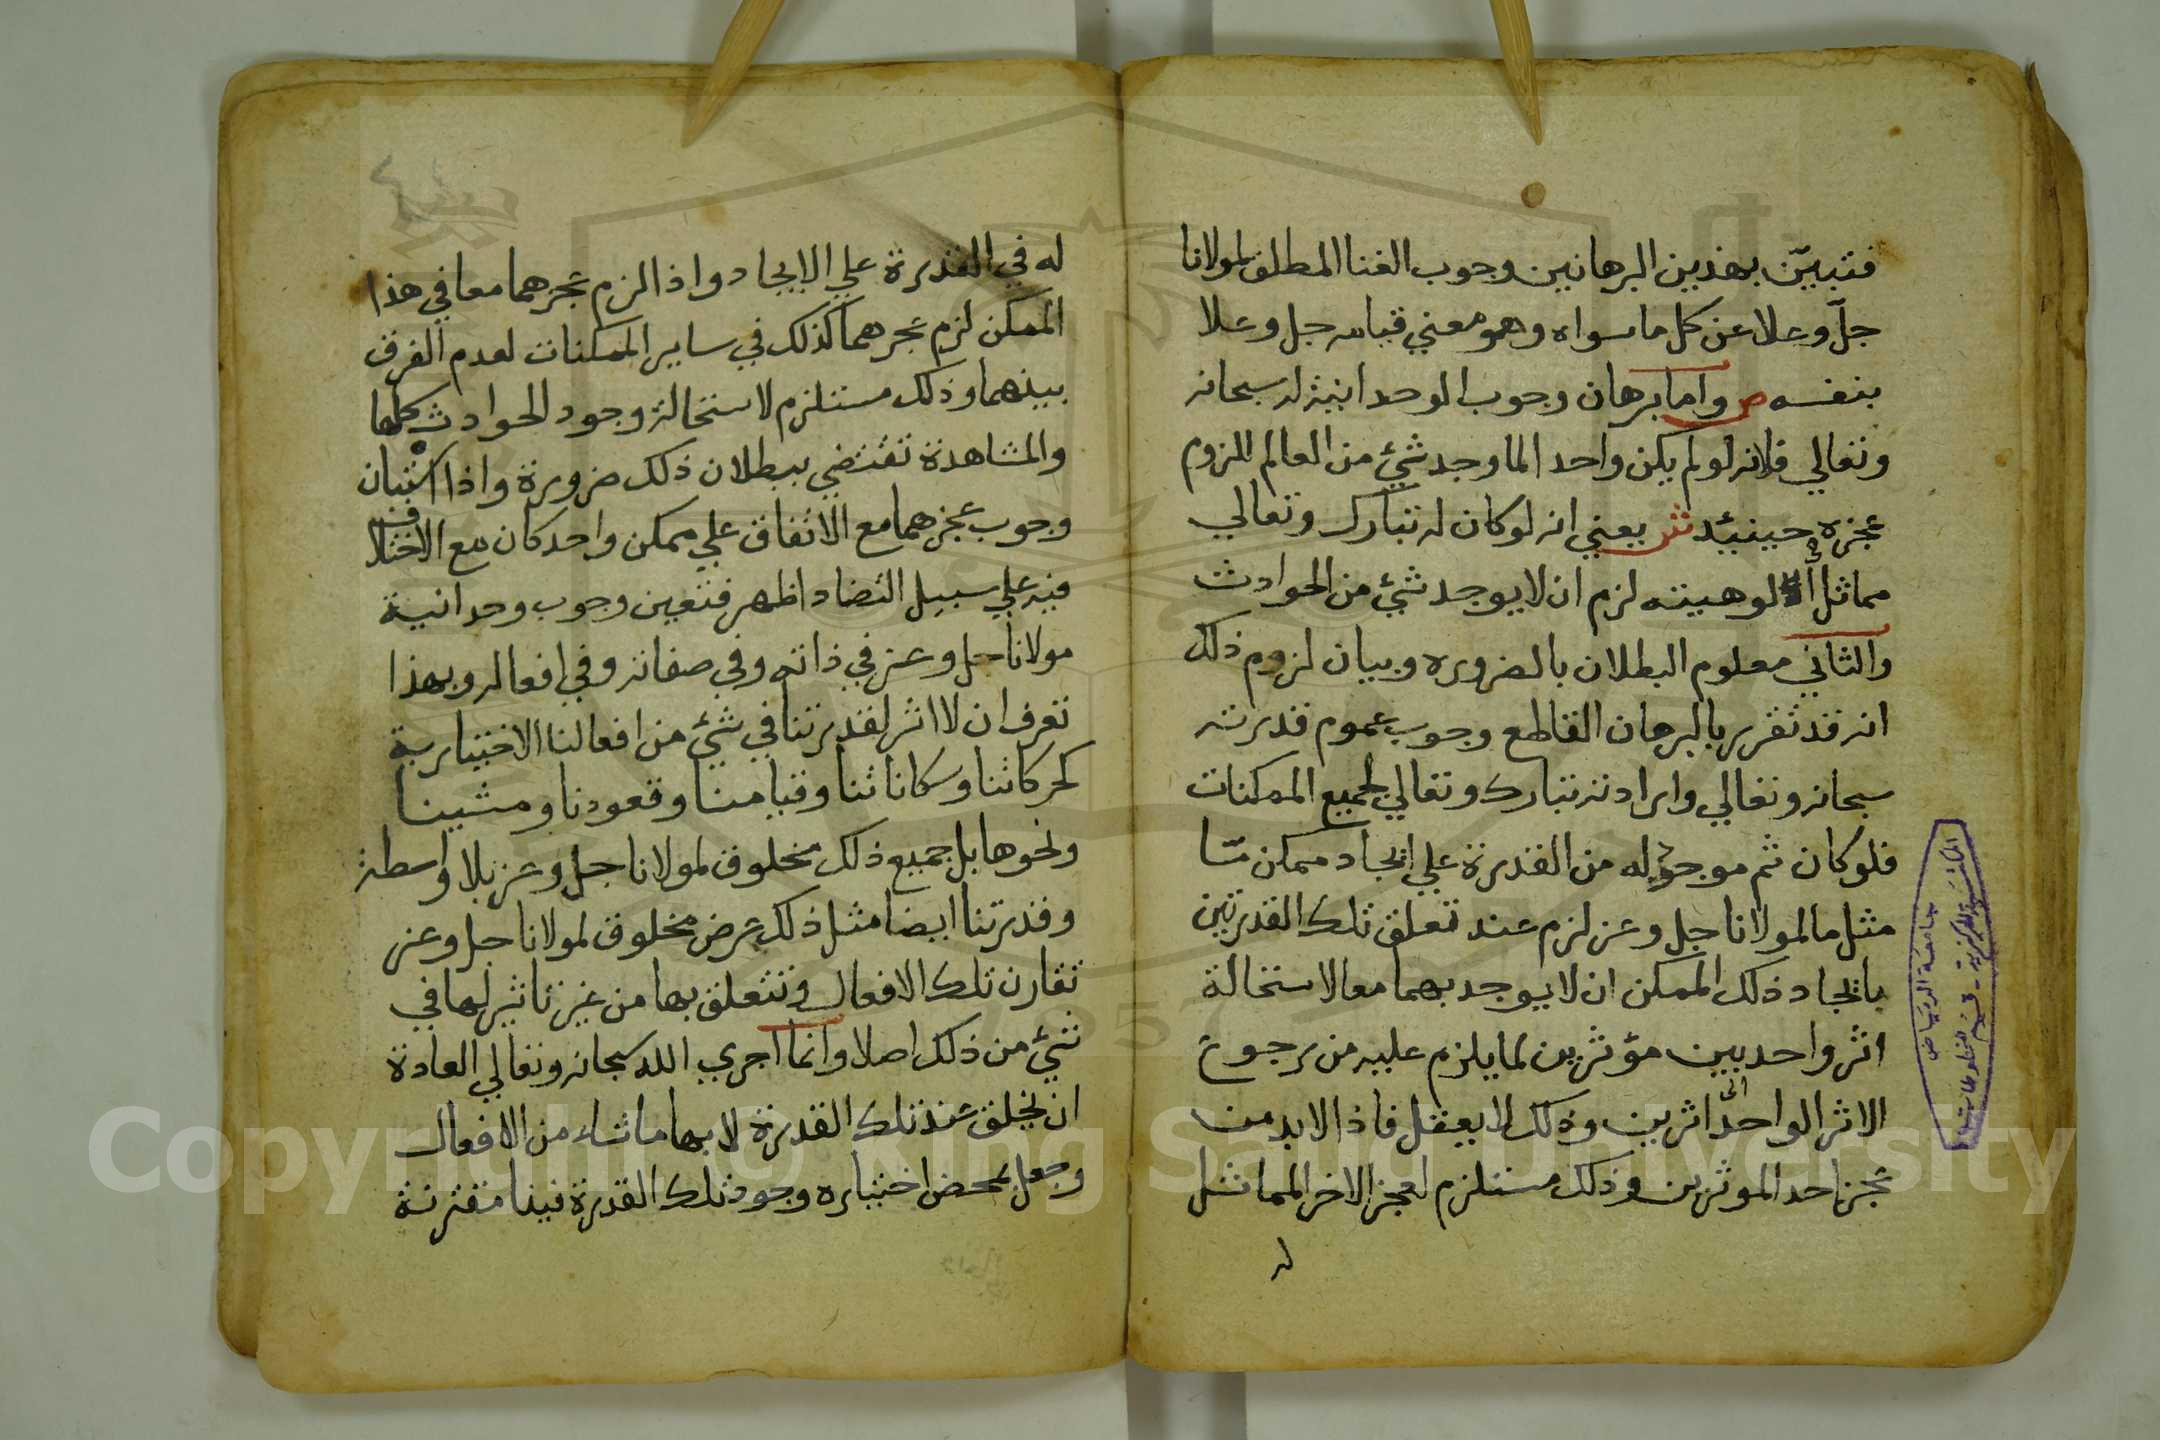 فتبيّن بهذين البرهانين وجوب الغنا المطلق لمولانا
جلّ وعلا عن كل ما سواه وهو معني قيامه جل وعلا
بنفسه ص واما برهان وجوب الوحدانية له سبحانه
وتعالي فلانه لو لم يكن واحد الما وجد شيء من العالم للزوم
عجزه حينئد ش يعني انه لو كان له تبارك وتعالي
مماثل في الوهيته لزم ان لا يوجد شيء من الحوادث
والثاني معلوم البطلان بالضروره وبيان لزوم ذلك
انه قد تقرر بالبرهان القاطع وجوب عموم قدرته
سبحانه وتعالي وارادته تبارك وتعالي لجميع الممكنات
فلو كان ثم موجود له من القدرة علي ايجاد ممكن مّا
مثل ما لمولانا جل وعز لزم عند تعلق تلك القدرتين
بايجاد ذلك الممكن ان لا يوجد بهما معا لاستحالة
اثر واحد بين مؤثرين لما يلزم عليه من رجوع
الاثر الواحد الي اثرين وذلك لا يعقل فاذا لا بد من
عجز احد الموثرين وذلك مستلزم لعجز الاخر المماثل
له
له في القدرة علي الايجاد واذا لزم عجزهما معا في هذا
الممكن لزم عجزهما كذلك في ساير الممكنات لعدم الفرق
بينهما وذلك مستلزم لاستحالة وجود الحوادث كلها
والمشاهدة تقتضي ببطلان ذلك ضرورة واذا استبان
وجوب عجزهما مع الاتفاق علي ممكن واحد كان مع الاختلاف
فيه علي سبيل التضاد اظهر فتعين وجوب وحدانية
مولانا جل وعز في ذاته وفي صفاته وفي افعاله وبهذا
تعرف ان لا اثر لقدرتنا في شيء من افعالنا الاختيارية
كحركاتنا وسكاناتنا وقيامنا وقعودنا ومشينا
ونحوها بل جميع ذلك مخلوق لمولانا جل وعز بلا واسطة
وقدرتنا ايضا مثل ذلك عرض مخلوق لمولانا جل وعز
تقارن تلك الافعال وتتعلق بها من غير تاثير لها في
شيء من ذلك اصلا وانما اجري الله سبحانه وتعالي العادة
ان يخلق عند تلك القدرة لا بها ما شاء من الافعال
وجعل بمحض اختياره وجود تلك القدرة فينا مقترنة
جامعة الرياض
Copyright © King Saud University